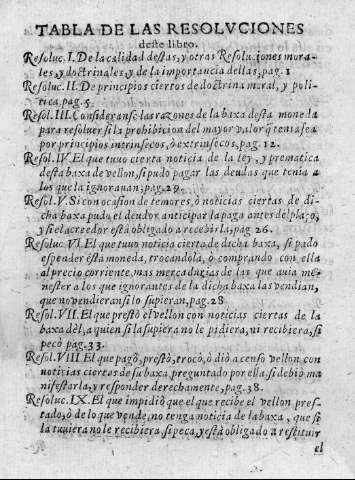 TABLA DE LAS RESOLVCIONES
deste libro.
Resoluc. I. De la calidad destas, y otras Resoluciones mora-
les, y doctrinales, y de la importancia dellas, pag. 1
Resoluc. II. De principios ciertos de doctrina moral, y poli-
tica, pag. 5.
Resol. III. Considéranse las razones de la baxa desta moneda
para resoluer si la prohibicion del mayor valor q̃ tenia fue
por principios intrinsecos, ò extrinsecos, pag. 12.
Resol. IV. El que tuuo cierta noticia de la ley, y prematica
desta baxa de vellon, si pudo pagar las deudas que tenia a
los que la ignorauan, pag. 20.
Resol. V. Si con ocasion de temores, ò noticias ciertas de di-
cha baxa pudo el deudor anticipar la paga antes del plazo,
y si el acreedor está obligado a recebirla, pag 26.
Resoluc. VI. El que tuuo noticia cierta de dicha baxa, si pudo
espender esta moneda, trocandola, ò comprando con ella
al precio corriente, mas mercaduzias de las que auia me-
nester a los que ignorantes de la dicha baxa las vendian,
que no vendieran si lo supieran, pag. 28
Resol. VII. El que prestò el vellon con noticias ciertas de la
baxa dèl, a quien si la supiera no le pidiera, ni recibiera, si
pecò pag. 33.
Resol. VIII. El que pagò, prestò, trocò, ò diò a censo vellon con
noticias ciertas de su baxa, preguntado por ella, si debiò ma
nifestarla, y responder derechamente, pag. 38.
Resoluc. IX. El que impidiò que el que recibe el vellon pres-
tado, ò de lo que vende, no tenga noticia de la baxa, que si
la tuuiera no le recibiera, si peca, y està obligado a restituir
el